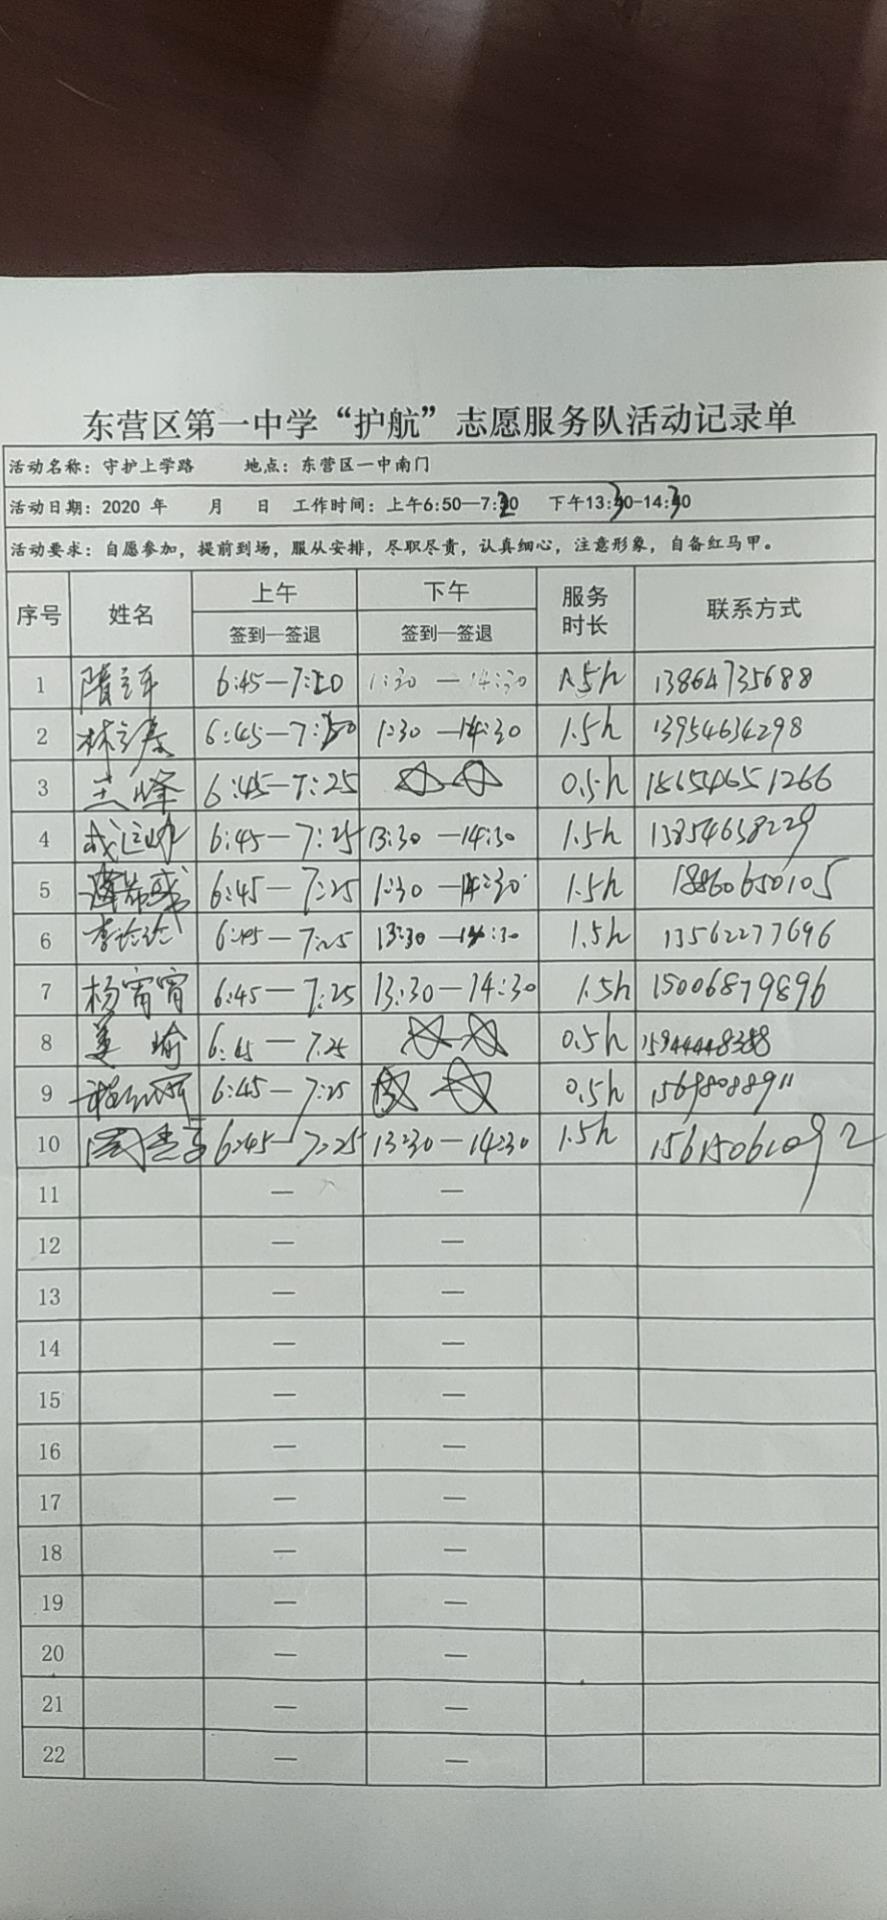 东营区第一中学“护航”志愿服务队活动记录单
活动名称：守护上学路 地点：东营区一中南门
活动日期：2020 年 月 日 工作时间：上午6:50—7:20 下午13:30-14:30
活动要求：自愿参加，提前到场，服从安排，尽职尽责，认真细心，注意形象，自备红马甲。
序号 姓名 上午 下午 服务时长 联系方式
签到—签退 签到—签退
1 6:45—7:20 1:30—14:30 1.5h 13864735688
2 6:45—7:20 1:30—14:30 1.5h 13954634298
3 王峰 6:45—7:25 0.5h 18654651266
4 6:45—7:25 13:30—14:30 1.5h 13854658229
5 6:45—7:25 1:30—14:30 1.5h 18860650105
6 6:45—7:25 13:30—14:30 1.5h 13562277696
7 杨宵宵 6:45—7:25 13:30—14:30 1.5h 15006879896
8 姜瑜 6:45—7:25 0.5h
9 6:45—7:25 0.5h 15698088911
10 6:45—7:25 13:30—14:30 1.5h
11 — —
12 — —
13 — —
14 — —
15 — —
16 — —
17 — —
18 — —
19 — —
20 — —
21 — —
22 — —